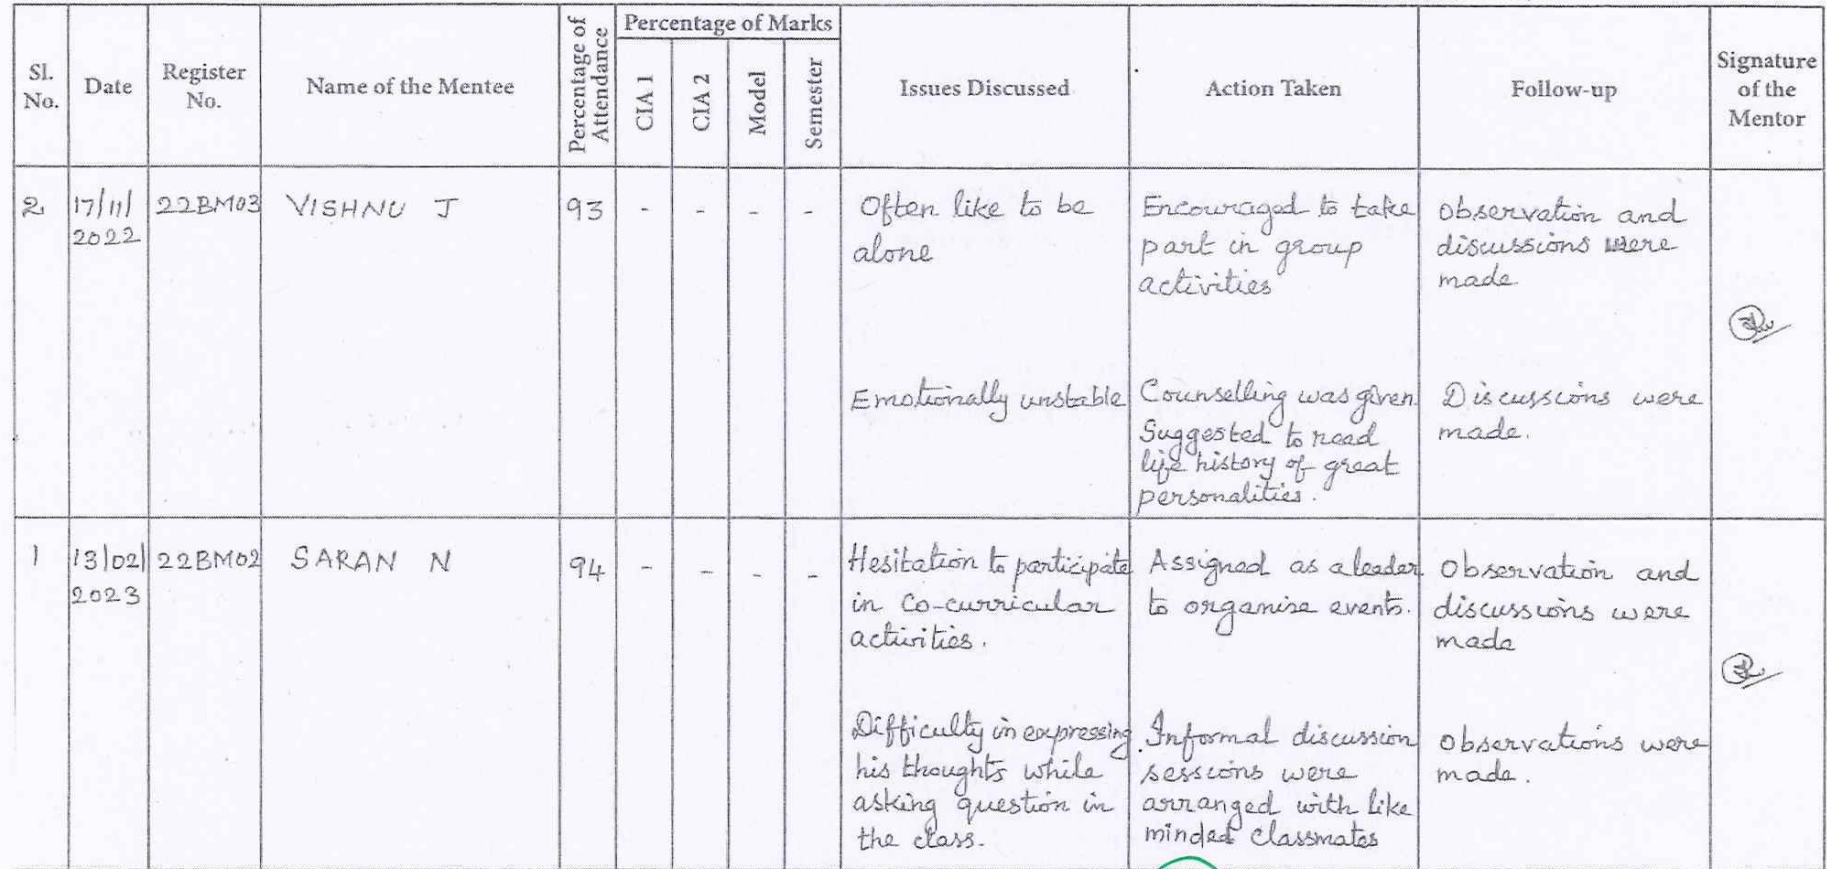 Sl. No.
Date
Register No.
Name of the Mentee
Percentage of Attendance
Percentage of Marks
CIA 1
CIA 2
Model
Semester
Issues Discussed
Action Taken
Follow-up
Signature of the Mentor
2
17/11/
2022
22BM03
VISHNU J
93
-
-
-
-
Often like to be
alone
Encouraged to take
part in group
activities
Observation and
discussions were
made.
Emotionally unstable
Counselling was given.
Suggested to read
life history of great
personalities.
Discussions were
made.
1
13/02/
2023
22BM02
SARAN N
94
-
-
-
-
Hesitation to participate
in co-curricular
activities.
Assigned as a leader
to organise events.
Observation and
discussions were
made
Difficulty in expressing
his thoughts while
asking question in
the class.
Informal discussion
sessions were
arranged with like
minded classmates
Observations were
made.